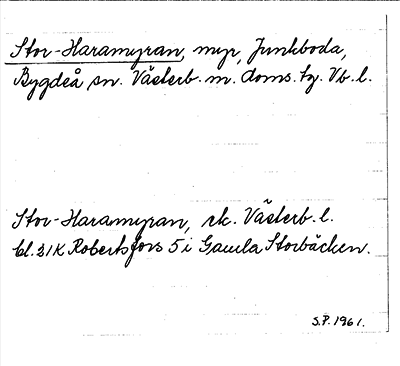 Stor-Haramyran, myr, Junkboda,
Bygdeå sn. Västerb. m. doms. tg. Vb. l.
Stor-Haramyran, ek. Västerb. l.
bl. 21K Robertsfors 5 i Gamla Storbäcken.
S.P. 1961.